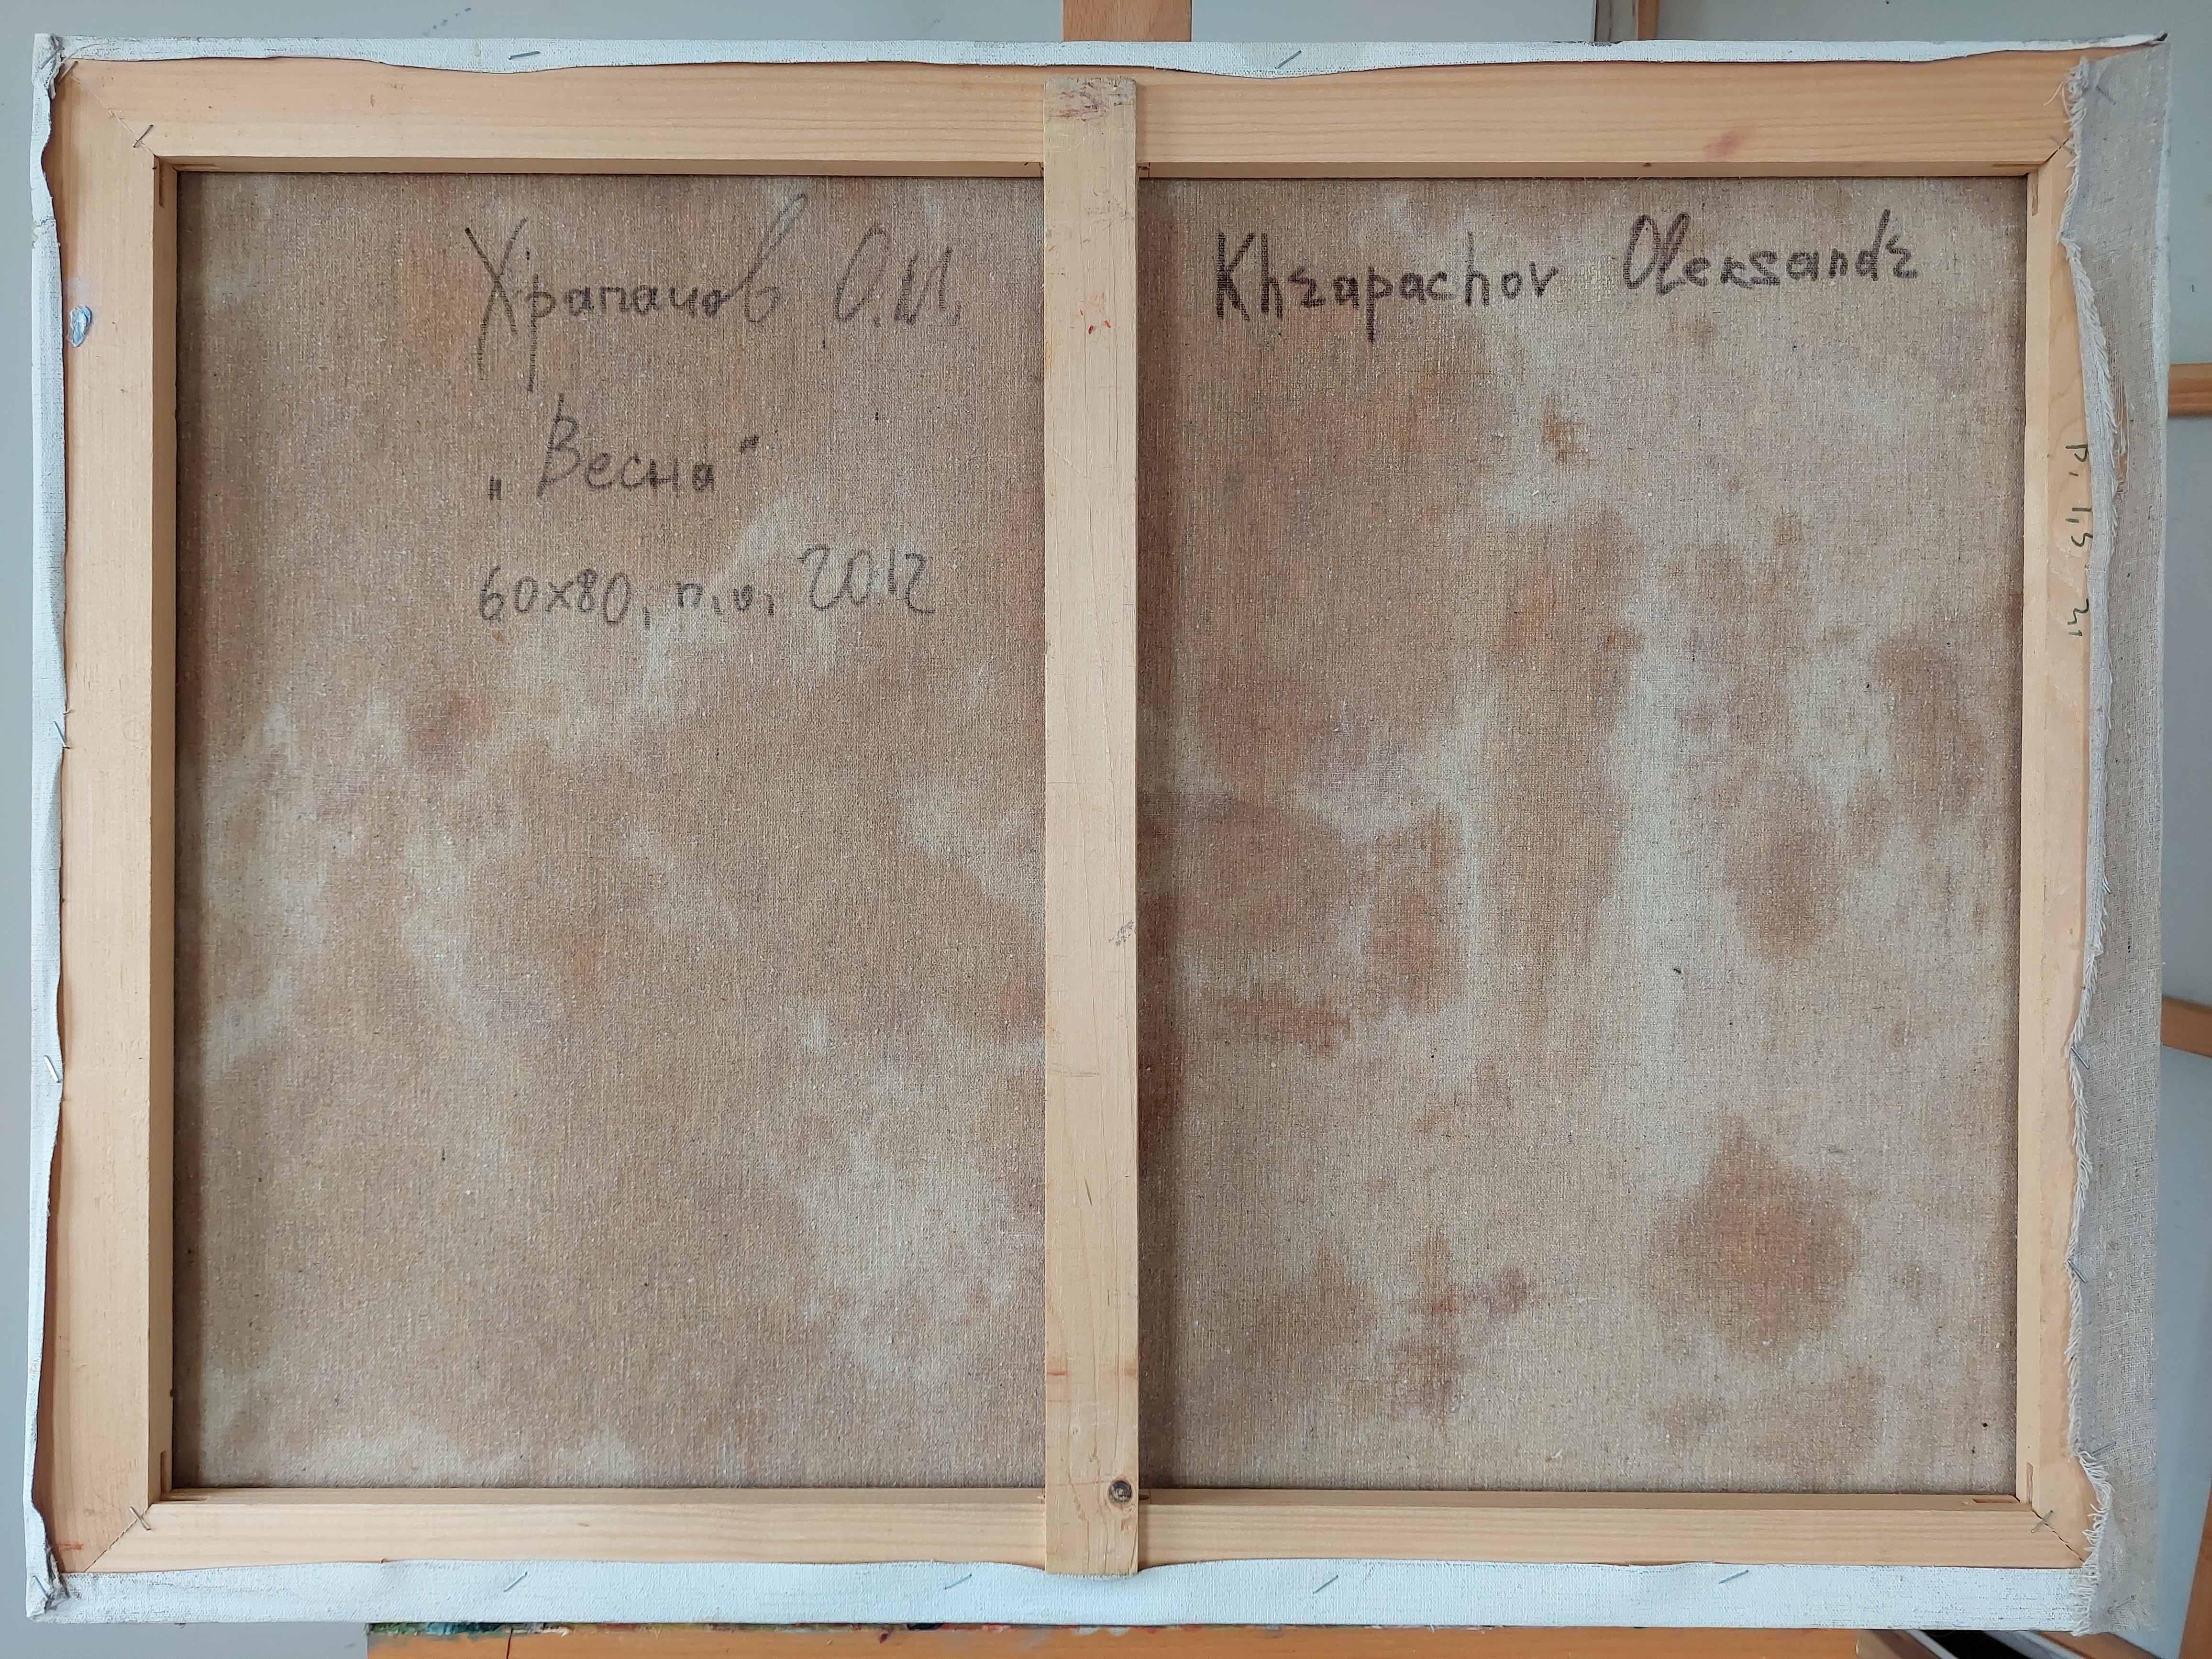 Храпачов О.М.
„Весна"
60х80, п.о, 2012
Khrapachov Oleksandr